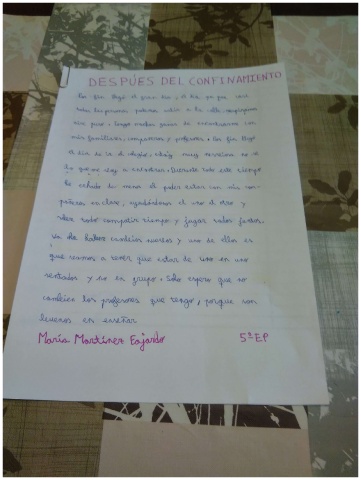 DESPÚES DEL CONFINAMIENTO
Por fin llegó el gran día, el día en que casi
todas las personas podrán salir a la calle
sin peligro. Tengo muchas ganas de encontrarme con
mis familiares, compañeros y profesores. Por fin llegó
el día de ir al colegio, estoy muy nerviosa no sé
lo que me voy a encontrar. Durante todo este tiempo
he echado de menos el poder estar con mis com-
pañeros en clase, ayudándonos el uno al otro y
sobre todo compartir tiempo y jugar todos juntos.
Va de haber cambios nuevos y uno de ellos es
que vamos a tener que estar de uno en uno
sentados y no en grupo. Solo espero que no
cambien los profesores que tengo, porque son
buenos en enseñar
María Martínez Fajardo 5º EP